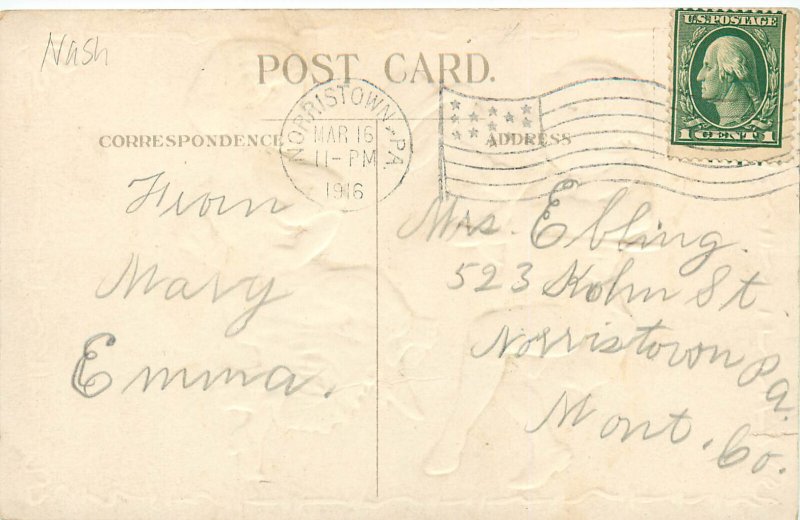 Nash
POST CARD.
U.S. POSTAGE
1 CENT 1
NORRISTOWN, PA.
MAR 16
11-PM
1916
CORRESPONDENCE
ADDRESS
From
Mary
Emma.
Mrs. Ebling.
523 Kohn St
Norristown Pa.
Mont. Co.